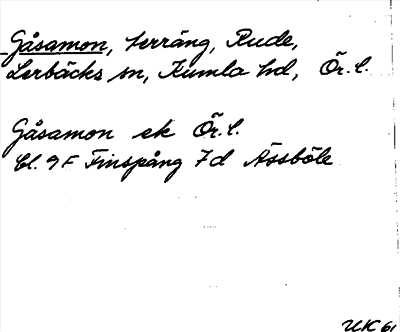 Gåsamon, terräng, Rude,
Lerbäcks sn, Kumla hd, Ör. l.
Gåsamon ek Ör. l.
bl. 9 F Finspång 7d Åssböle
UK 61